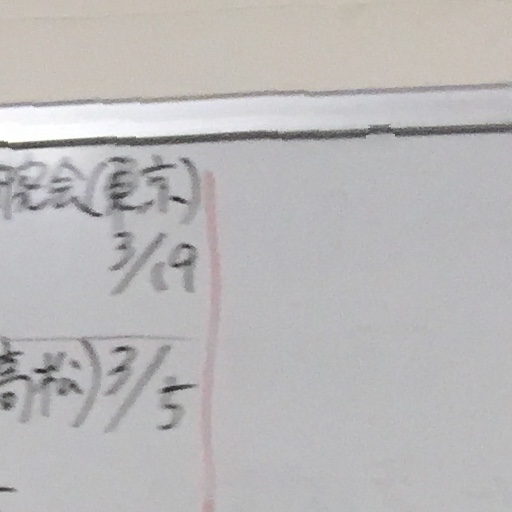 院会(東京)
3/19
高松)3/5